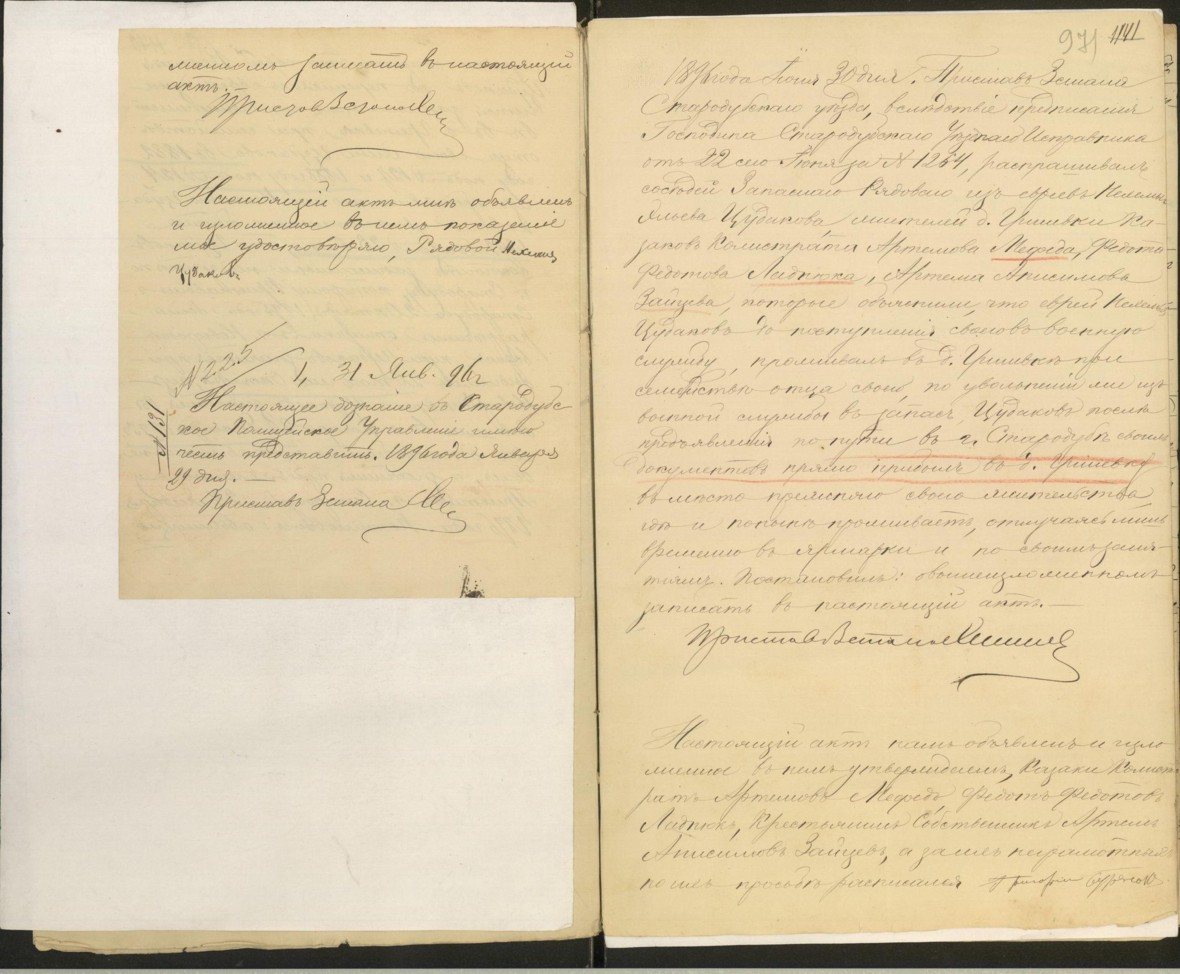 женномъ записать въ настоящій
актъ.
Приставъ 3 стана
Настоящій актъ мнѣ объявленъ
и изложенное въ немъ показаніе
мое удостовѣряю, Рядовой
Цудаковъ
N 225
1, 31 Янв. 96 г
Настоящее дознаніе въ Стародубс-
кое Полицейское Управленіе имѣю
честь представить. 1896 года Января
29 дня. —
N 131
Приставъ 3 стана
971 1141
1896 года Іюня 30 дня. Приставъ 3 стана
Стародубскаго уѣзда, вслѣдствіе предписанія
Господина Стародубскаго Уѣзднаго Исправника
отъ 22 сего Іюня за N 1254, распрашивалъ
сосѣдей Запаснаго Рядоваго изъ евреевъ
Цудакова, жителей д. Гришевки Ка-
заковъ Калистрата Артемова Мефеда, Федота
Федотова Ладпюка, Артема Анисимова
Зайцева, которые объяснили, что еврей
Цудаковъ до поступленія своего въ военную
службу, проживалъ въ д. Гришевкѣ при
семействѣ отца своего, по увольненіи же изъ
военной службы въ запасъ, Цудаковъ послѣ
предъявленія по пути въ г. Стародубѣ своихъ
документовъ прямо прибылъ въ д. Гришевку
въ мѣсто прежняго своего жительства,
гдѣ и понынѣ проживаетъ, отлучаясь лишь
временно въ ярмарки и по своимъ заня-
тіямъ. Постановилъ: о вышеизложенномъ
записать въ настоящій актъ. —
Приставъ 3 стана
Настоящій актъ намъ объявленъ и изло-
женное въ немъ утверждаемъ, Казаки Калист-
ратъ Артемовъ Мефедъ, Федотъ Федотовъ
Ладпюкъ, Крестьянинъ Собственникъ Артемъ
Анисимовъ Зайцевъ, а за нихъ неграмотныхъ
по ихъ просьбѣ расписался